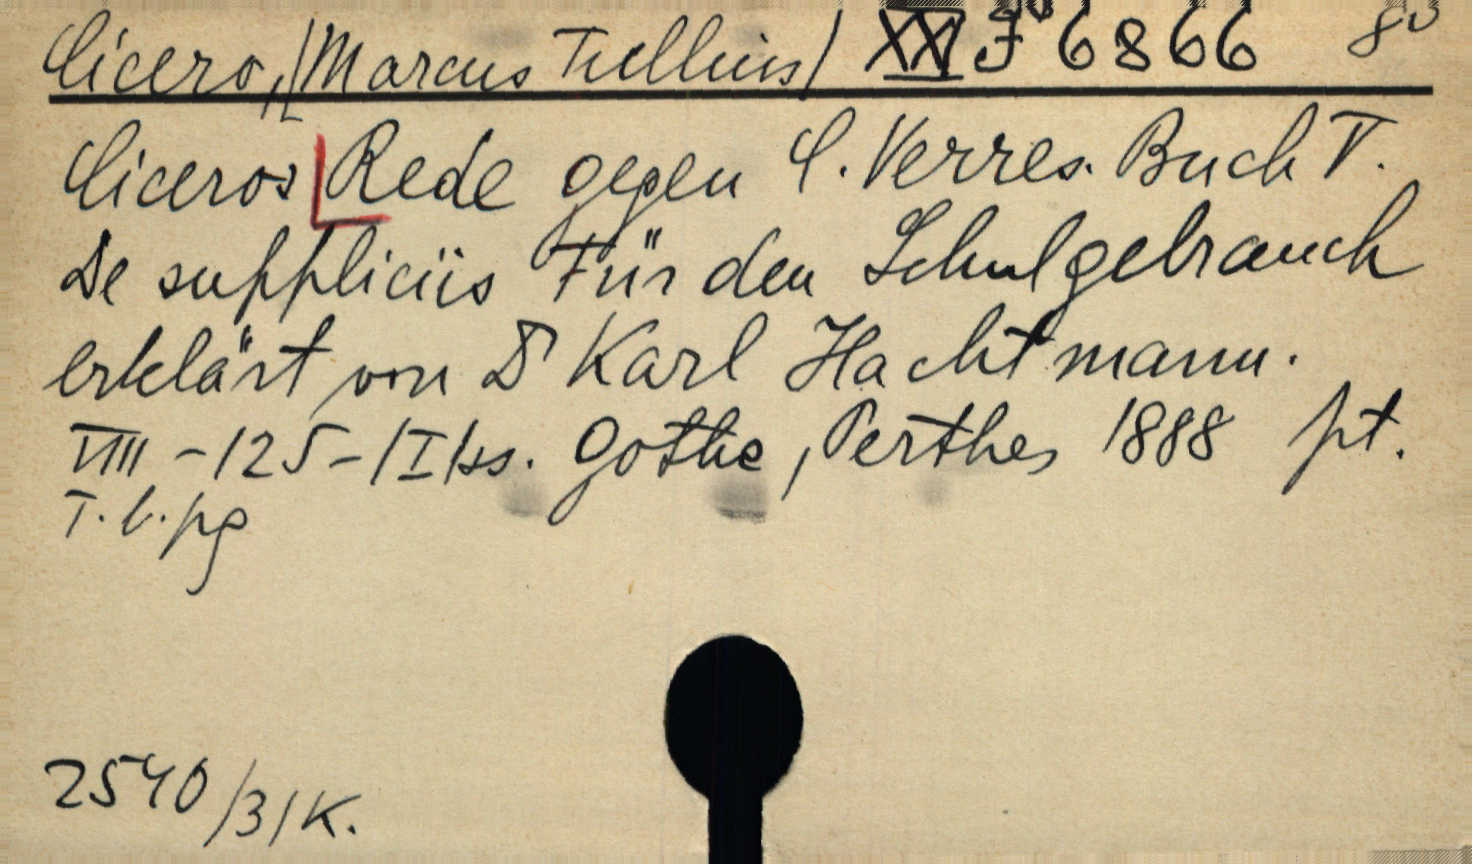 Cicero, /Marcus Tullius/ XXI J 6866 8°
Ciceros Rede gegen C. Verres. Buch V.
De suppliciis Für den Schulgebrauch
erklärt von Dr Karl Hachtmann.
VIII - 125 - /I/ ss. Gotha, Perthes 1888 pt.
T. l. pg
2540/31 K.